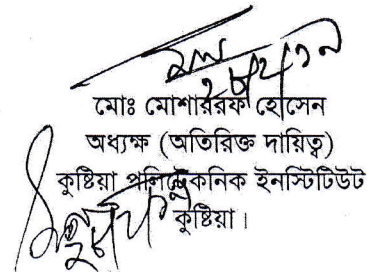 মোঃ মোশাররফ হোসেন
অধ্যক্ষ (অতিরিক্ত দায়িত্ব)
কুষ্টিয়া পলিটেকনিক ইনস্টিটিউট
কুষ্টিয়া।